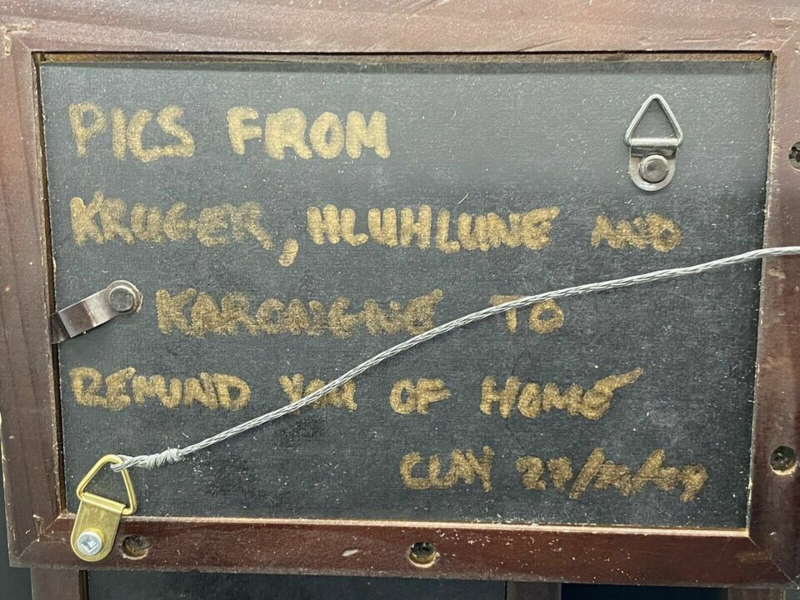 PICS FROM
KRUGER, HLUHLUWE AND
KARONGWE TO
REMIND YOU OF HOME
CLAY